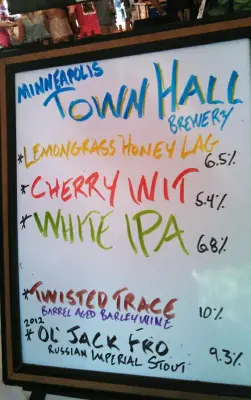 MINNEAPOLIS
TOWN HALL
BREWERY
*LEMONGRASS HONEY LAG
6.5%
*CHERRY WIT
5.4%
*WHITE IPA
6.8%
*TWISTED TRACE 10%
BARREL AGED BARLEYWINE
2012
*OL' JACK FRO 9.3%
RUSSIAN IMPERIAL STOUT